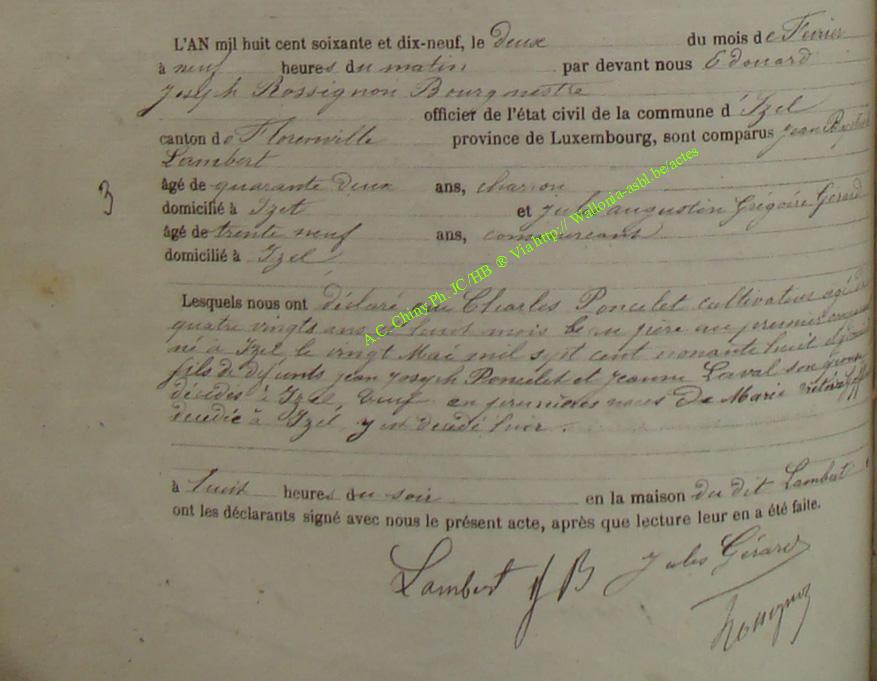 L'AN mil huit cent soixante et dix-neuf, le deux du mois de Fevrier
à neuf heures du matin par devant nous Edouard
Joseph Rossignon Bourgmestre
officier de l'état civil de la commune d'Izel
canton de Florenville province de Luxembourg, sont comparus Jean
Lambert
3
âgé de quarante deux ans, charron
domicilié à Izel et Jules augustin Grégoire Gérard
âgé de trente neuf ans, commercant
domicilié à Izel
Lesquels nous ont déclaré que Charles Poncelet cultivateur agé de
quatre vingts ans et huit mois beau père au premier
né à Izel le vingt Mai mil sept cent nonante huit
fils de défunts jean Joseph Poncelet et Jeanne Laval son
décédés à Izel, veuf en premières noces De Marie
décédée à Izel y est décédé hier.
à huit heures du soir en la maison du dit Lambert
ont les déclarants signé avec nous le présent acte, après que lecture leur en a été faite.
Lambert J B Jules Gérard
Rossignon
A.C. Chiny Ph. JC/HB ® Via http:// Wallonia-asbl.be/actes